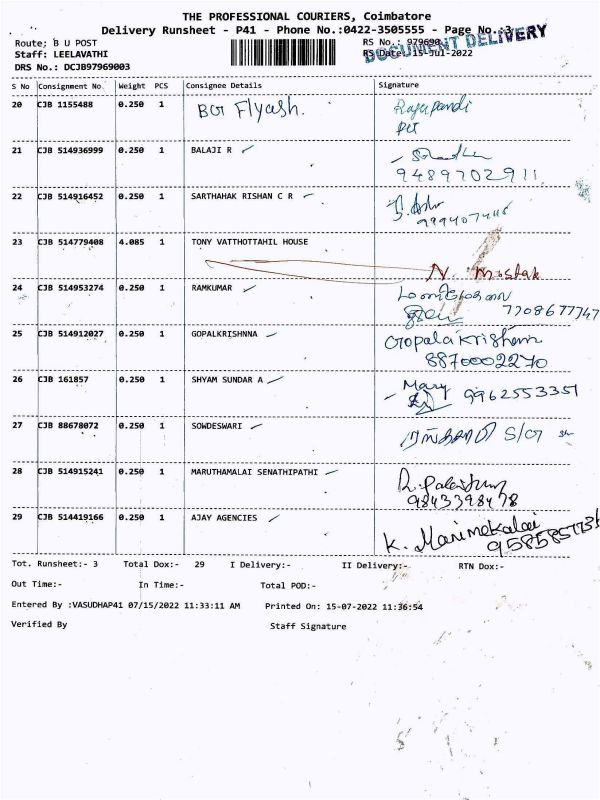 THE PROFESSIONAL COURIERS, Coimbatore
Delivery Runsheet - P41 - Phone No.:0422-3505555 - Page No.:3
Route; B U POST
Staff: LEELAVATHI
DRS No.: DCJB97969003
RS No.: 979690
RS Date: 15-Jul-2022
DOCUMENT DELIVERY
S No Consignment No. Weight PCS Consignee Details Signature
20 CJB 1155488 0.250 1 BGR Flyash. Rajapandi
21 CJB 514936999 0.250 1 BALAJI R
9489702911
22 CJB 514916452 0.250 1 SARTHAHAK RISHAN C R
23 CJB 514779408 4.085 1 TONY VATTHOTTAHIL HOUSE
N. Mustak
24 CJB 514953274 0.250 1 RAMKUMAR
7708677747
25 CJB 514912027 0.250 1 GOPALKRISHNNA Gopalakrishnan
8870002270
26 CJB 161857 0.250 1 SHYAM SUNDAR A Mary 9962553351
27 CJB 88678072 0.250 1 SOWDESWARI
28 CJB 514915241 0.250 1 MARUTHAMALAI SENATHIPATHI
9843398478
29 CJB 514419166 0.250 1 AJAY AGENCIES K. Manimekalai
Tot. Runsheet:- 3 Total Dox:- 29 I Delivery:- II Delivery:- RTN Dox:-
Out Time:- In Time:- Total POD:-
Entered By :VASUDHAP41 07/15/2022 11:33:11 AM Printed On: 15-07-2022 11:36:54
Verified By Staff Signature